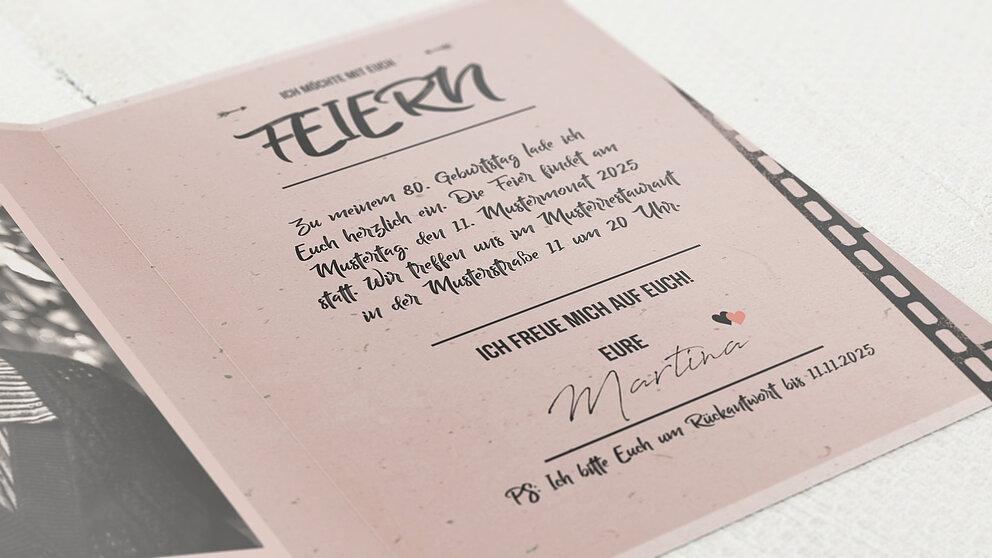 ICH MÖCHTE MIT EUCH
FEIERN
Zu meinem 80. Geburtstag lade ich
Euch herzlich ein. Die Feier findet am
Mustertag, den 11. Mustermonat 2025
statt. Wir treffen uns im Musterrestaurant
in der Musterstraße 11 um 20 Uhr.
ICH FREUE MICH AUF EUCH!
EURE
Martina
PS: Ich bitte Euch um Rückantwort bis 11.11.2025